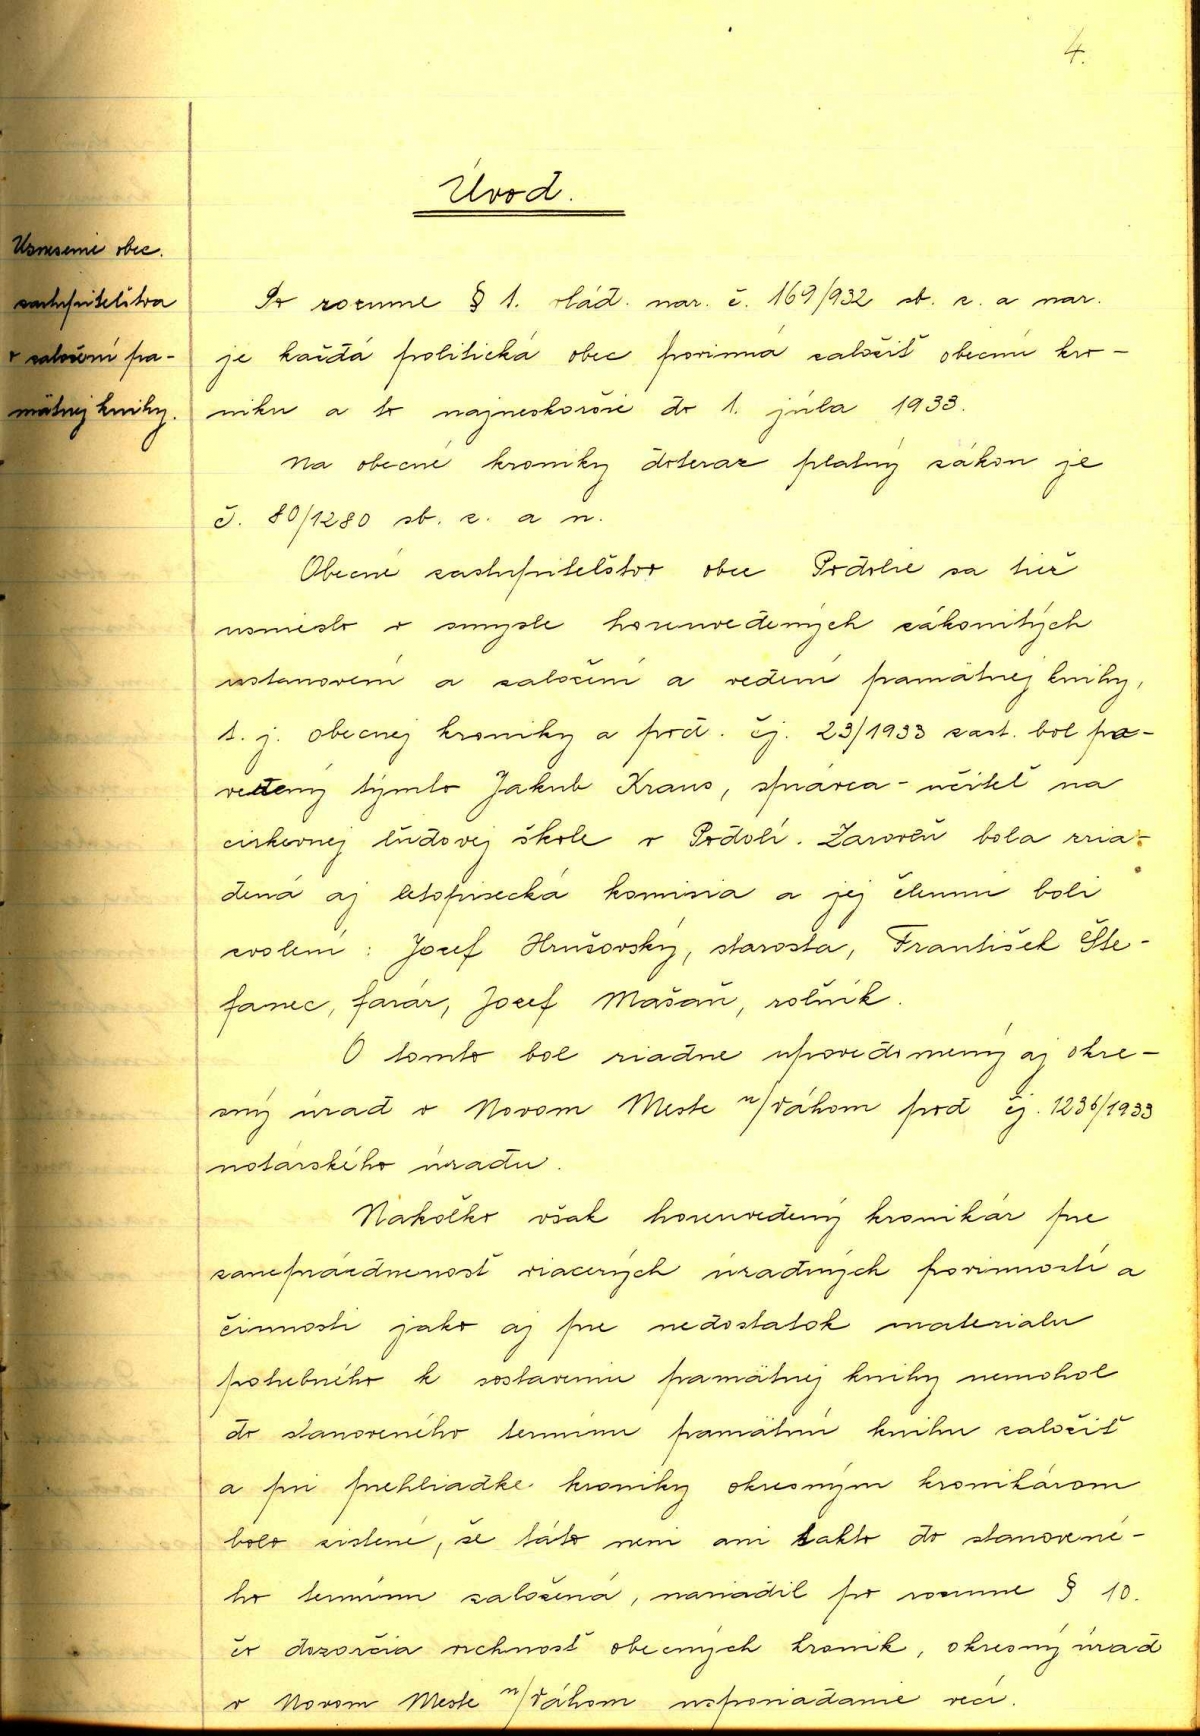 4.
Úvod.
Usnesenie obec.
zastupiteľstva
o založení pa-
mätnej knihy.
Po rozume § 1. vlád. nar. č. 169/932 sb. z. a nar.
je každá politická obec povinná založiť obecnú kro-
niku a to najneskoršie do 1. júla 1933.
Na obecné kroniky doteraz platný zákon je
č. 80/1280 sb. z. a n.
Obecné zastupiteľstvo obce Podolie sa tiež
usnieslo v smysle horeuvedených zákonitých
ustanovení a založení a vedení pamätnej knihy,
t. j. obecnej kroniky a pod. čj. 23/1933 zast. bol po-
vedený týmto Jakub Kraus, správca-učiteľ na
cirkevnej ľudovej škole v Podolí. Zároveň bola zria-
dená aj letopisecká komisia a jej členmi boli
zvolení: Jozef Hrušovský, starosta, František Šte-
fanec, farár, Jozef Mašaň, roľník.
O tomto bol riadne upovedomený aj okre-
sný úrad v Novom Meste n/Váhom pod čj. 1236/1933
notárského úradu.
Nakoľko však horeuvedený kronikár pre
zaneprázdnenosť viacerých úradných povinností a
činnosti jako aj pre nedostatok materialu
potrebného k sostaveniu pamätnej knihy nemohol
do stanoveného termínu pamätnú knihu založiť
a pri prehliadke kroniky okresným kronikárom
bolo zistené, že táto neni ani takto do stanovené-
ho termínu založená, nariadil po rozume § 10.
čo dozorčia vrchnosť obecných kroník, okresný úrad
v Novom Meste n/Váhom usporiadanie vecí.